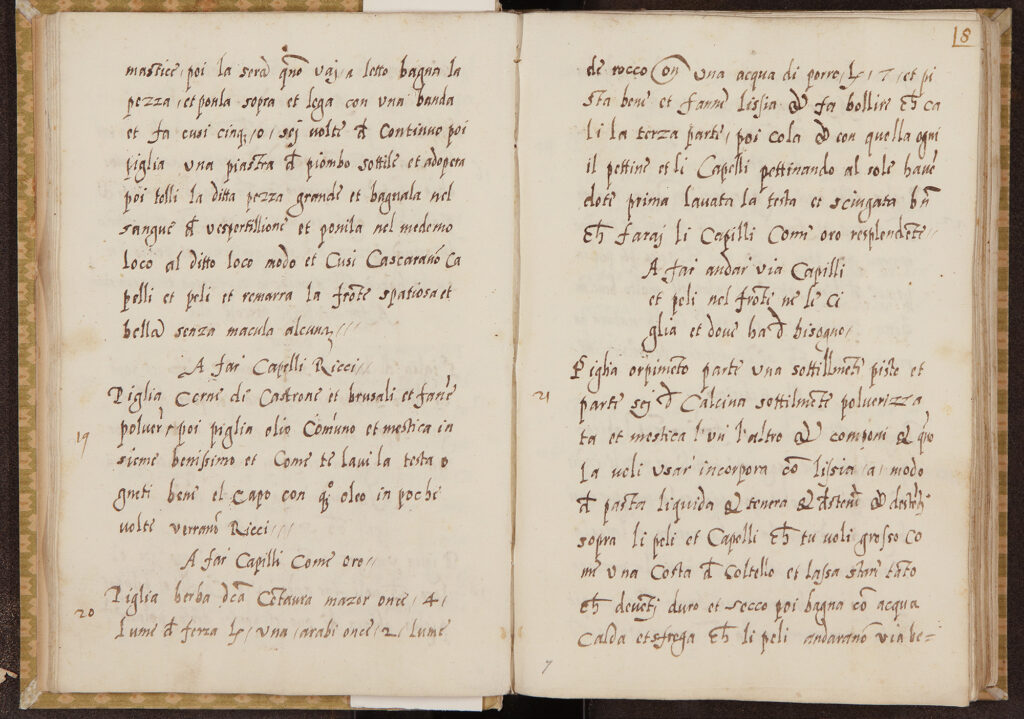 mastice, poi la sera qn̄o vaj, a letto bagna la
pezza, et ponla sopra et lega con una banda
et fa cusi cinq;, o, sej volte đ Continuo poi
piglia una piastra đ piombo sottile et adopera
poi tolli la ditta pezza grande et bagnala nel
sangue đ vespertillione et ponila nel medemo
loco al ditto loco modo et Cusi Cascaranō Ca
pelli et peli et remarra la frōte spatiosa et
bella senza macula alcuna///
A far Capelli Ricci/
19
Piglia Corne di Castrone et brusali et farne
polver, poi piglia olio Comuno et mestica in
sieme benissimo et Come te lavi la testa o
gneti bene el Capo con q̄o oleo in poche
volte verranō Ricci///
A far Capilli Come oro//
20
Piglia herba dc̄a Cētaura mazor once, 4,
lume đ ferza ℔, una, arabi once, 2, lume
18
de rocco on̄ una acqua di porro, ℔, 7, et pi
sta bene et fanne lissia et fa bollire ch̄ ca
li la terza parte, poi cola et con quella ogni
il pettine et li Capelli pettinando al sole have
dote prima lavata la testa et sciugata bn̄
ch̄ faraj li Capilli Come oro resplendēti//
A far andar via Capilli
et peli nel frōte ne le ci
glia et dove ha đ bisogno/
21
Piglia orpimēto parte una sottilmēti piste et
parti sej đ Calcina sottilmēte polverizza
ta et mestica l'un l'altro et componi et qn̄o
la voli usar incorpora cō lissia, a, modo
đ pasta liquida et tenera et
sopra li peli et Capelli ch̄ tu voli grosso co
me una Costa đ Coltello et lassa stare tāto
ch̄ devēti duro et secco poi bagna cō acqua
Calda et sfrega ch̄ li peli andaranō via be=
7